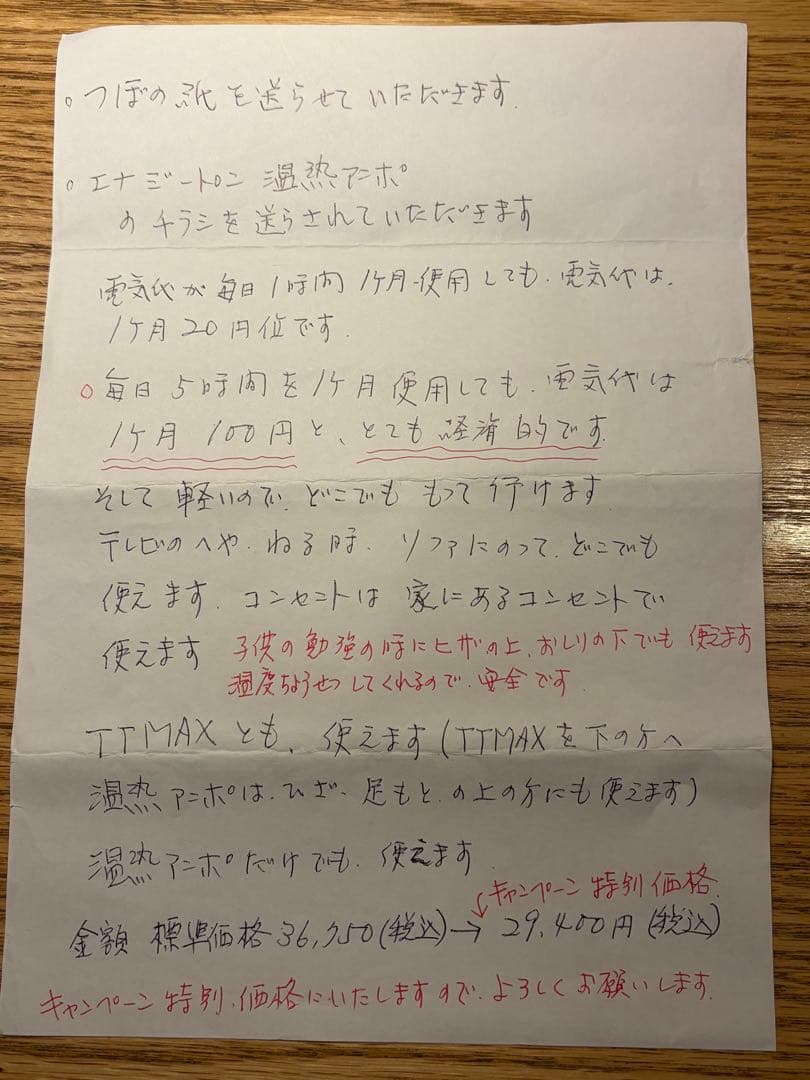 ○ つぼの紙を送らせていただきます.
○ エナジートロン 温熱アンポ
のチラシを送らされていただきます
電気代が毎日1時間1ケ月使用しても.電気代は.
1ケ月20円位です.
○ 毎日5時間を1ケ月使用しても.電気代は
1ケ月100円と、とても経済的です.
そして軽いので、どこでももって行けます
テレビのへや.ねる時.ソファにのって、どこでも
使えます.コンセントは家にあるコンセントで
使えます 子供の勉強の時にヒザの上、おしりの下でも使えます
温度ちょうせつしてくれるので、安全です.
TTMAXとも、使えます(TTMAXを下の方へ
温熱アンポは、ひざ、足もと、の上の方にも使えます)
温熱アンポだけでも、使えます
キャンペーン特別価格.
金額 標準価格36,750(税込)→29,400円(税込)
キャンペーン特別.価格にいたしますので、よろしくお願いします.